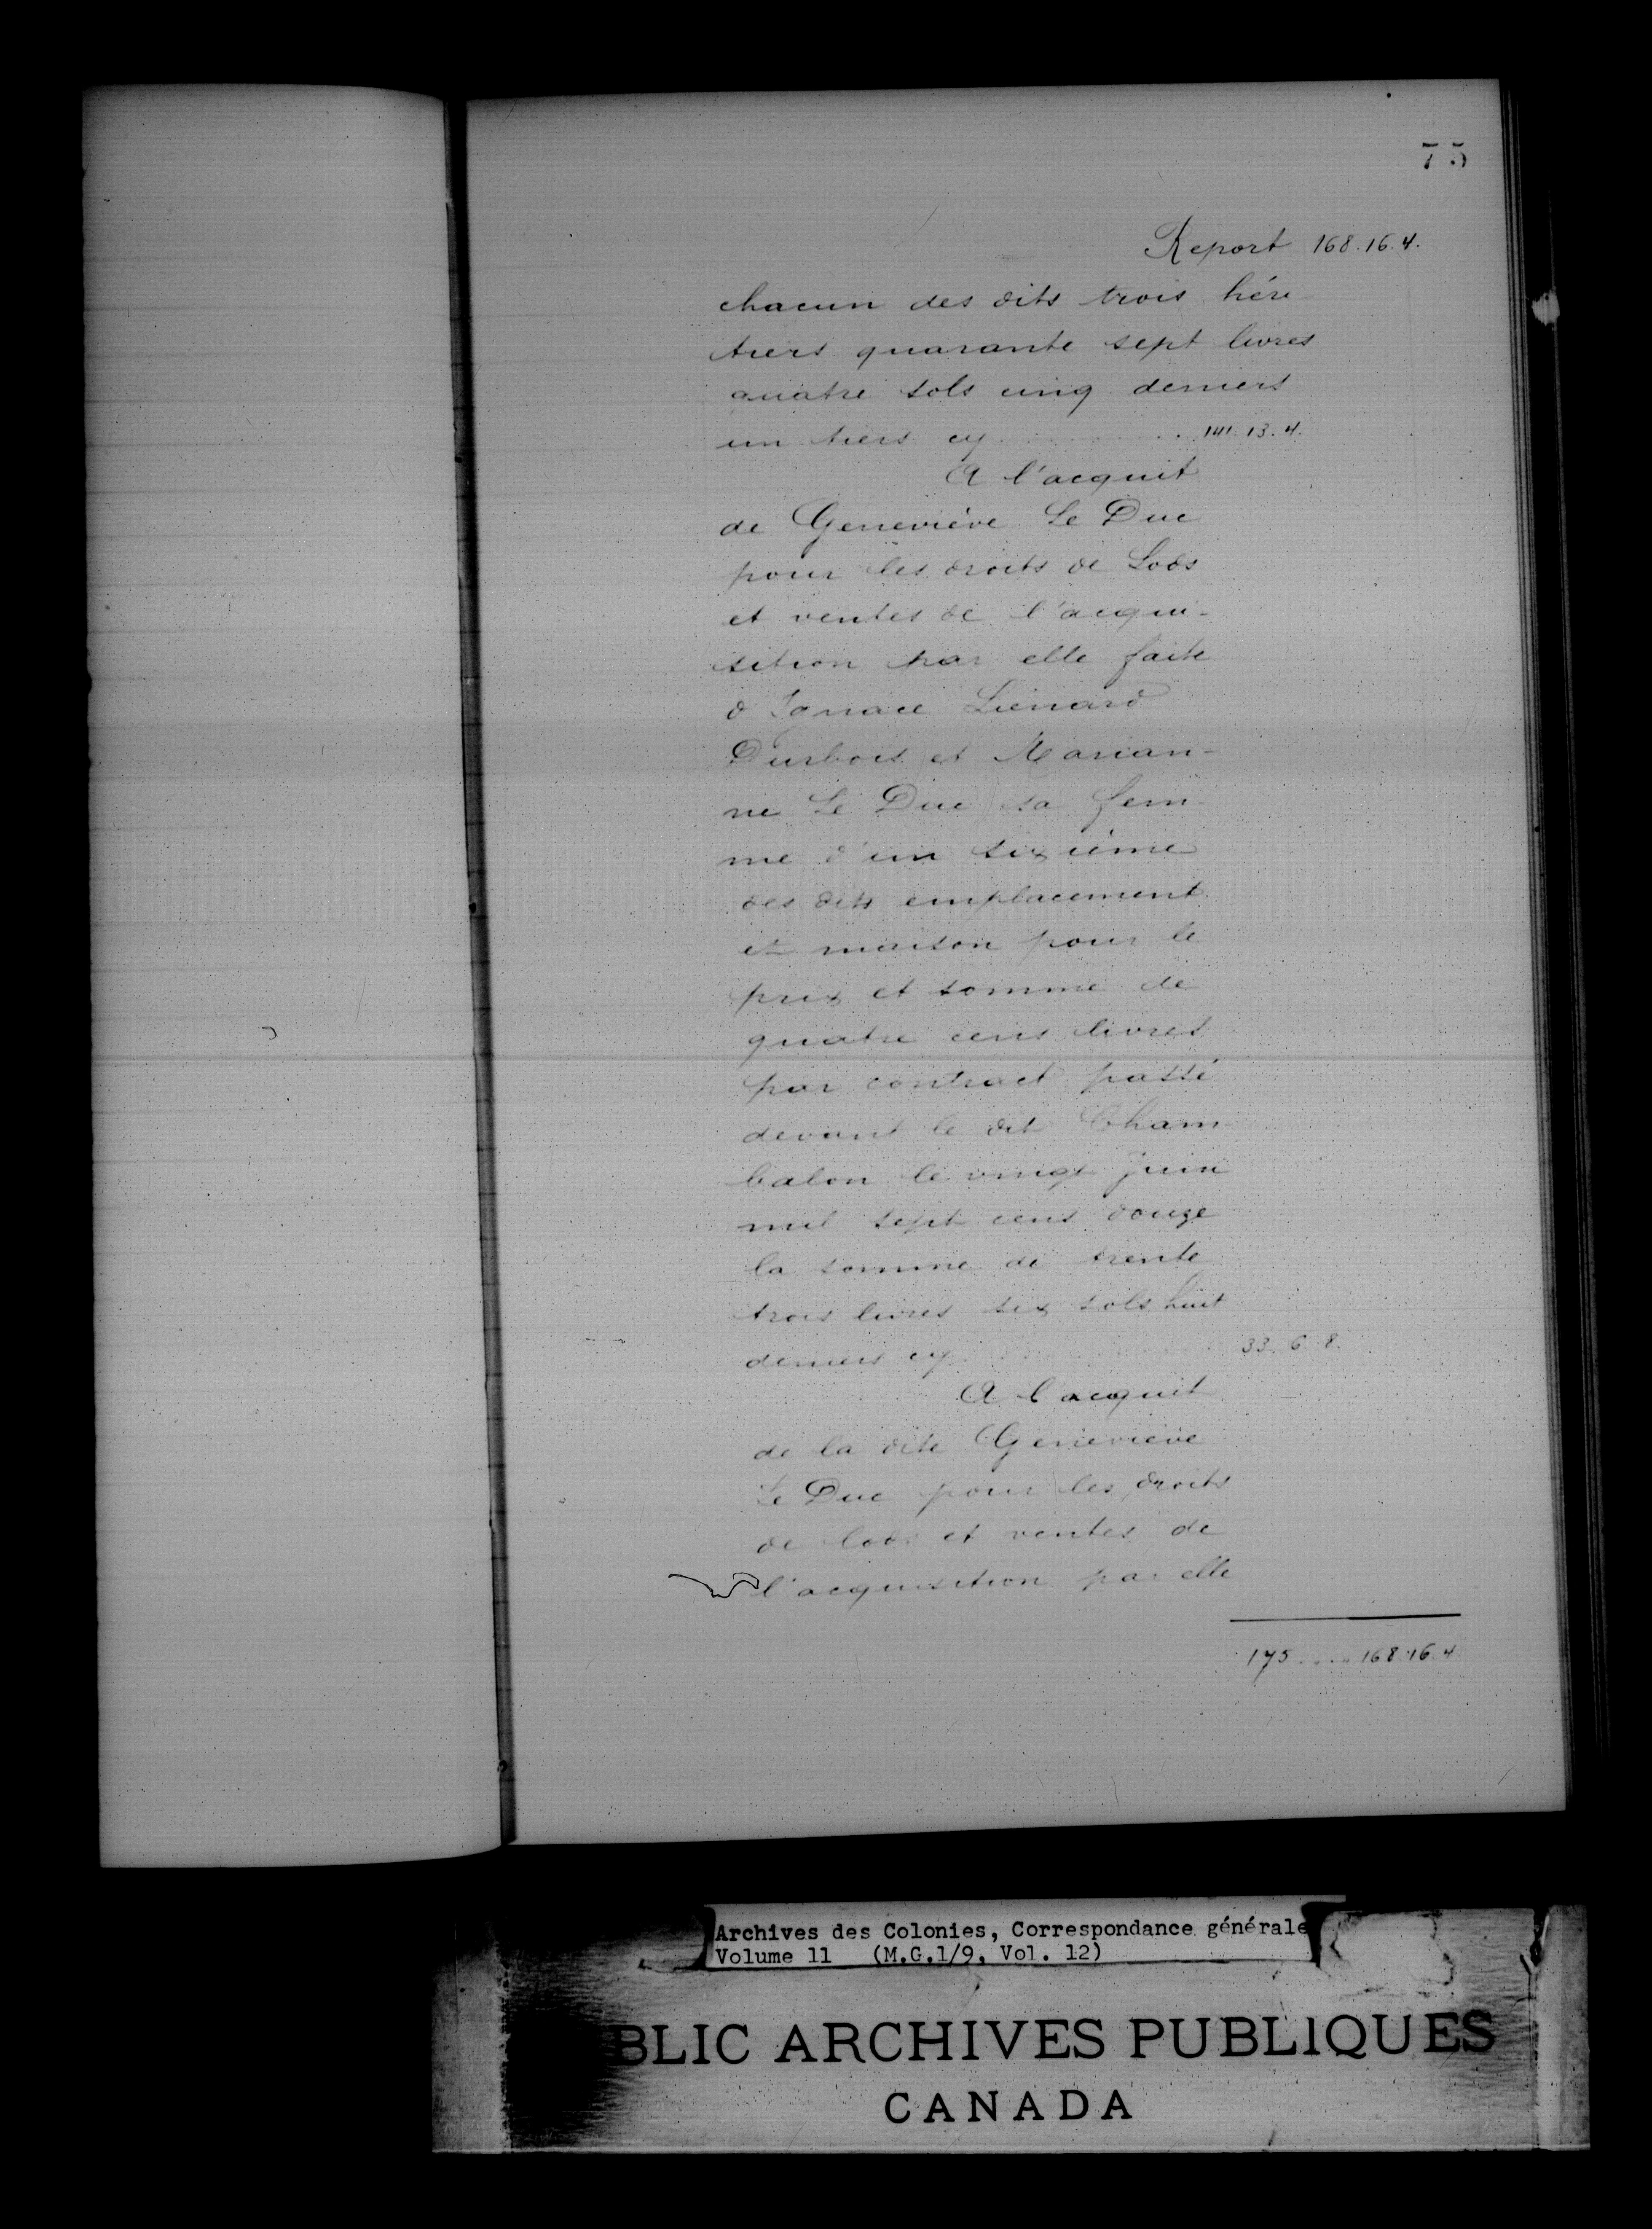 75
Report 168.16.4.
chacun des dits trois héri
tiers quarante sept livres
quatre sols cinq deniers
un tiers cy . . . . . . . . 141.13.4.
A l'acquit
de Geneviève Le Duc
pour les droits de Lods
et ventes de l'acqui-
sition par elle faite
d'Ignace Lienard
Durbois et Marian-
ne Le Duc sa fem-
me d'un sixième
des dits emplacement
et maison pour le
prix et somme de
quatre cens livres
par contract passé
devant le dit Cham
balon le vingt juin
mil sept cens douze
la somme de trente
trois livres six sols huit
deniers cy . . . . . . . . 33. 6 8.
A l'acquit
de la dite Geneviève
Le Duc pour les droits
de lods et ventes de
l'acquisition par elle
175 . . . . 168.16.4
Archives des Colonies, Correspondance générale
Volume 11 (M.G.1/9, Vol. 12)
BLIC ARCHIVES PUBLIQUES
CANADA